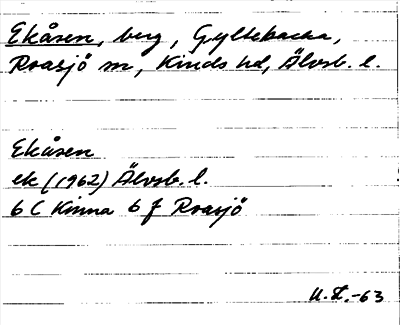 Ekåsen, berg, Gyltebacka,
Roasjö sn, Kinds hd, Älvsb. l.
Ekåsen
ek (1962) Älvsb. l.
6 C Kinna 6 f Roasjö
-63